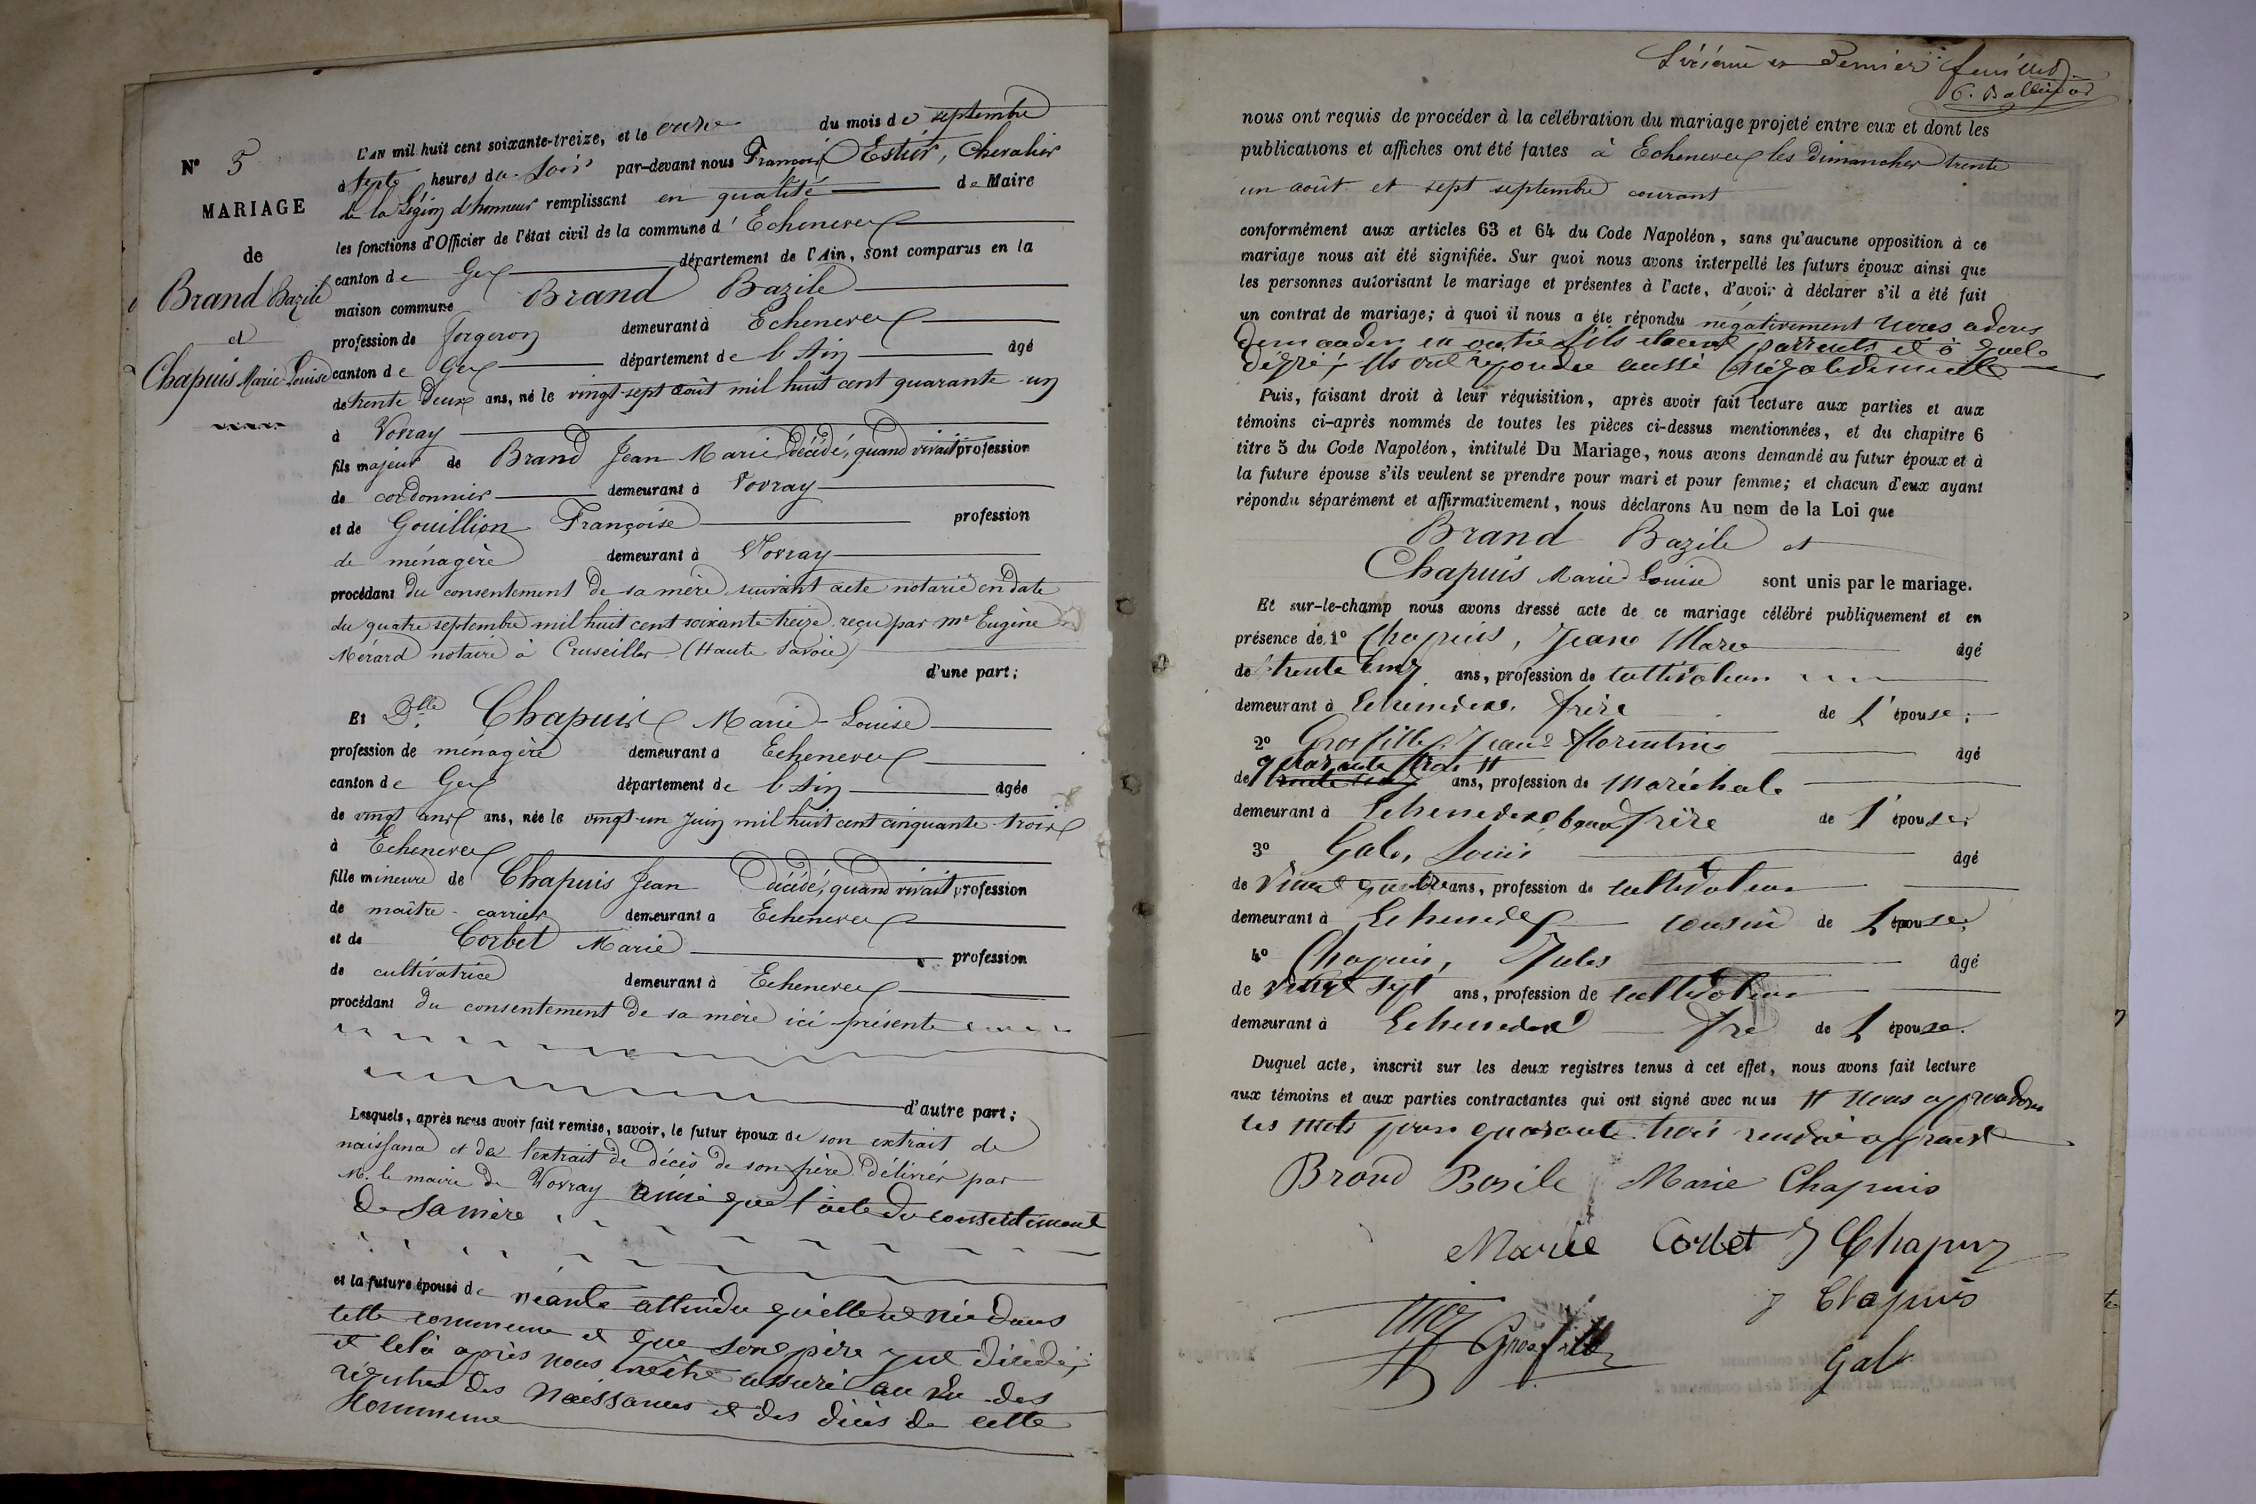 N° 5
MARIAGE
de
Brand Bazile
et
Chapuis Marie Louise
L'AN mil huit cent soixante-treize, et le onze du mois de septembre
à sept heures du soir par-devant nous François Estier, Chevalier
de la Légion d'honneur remplissant en qualité de Maire
les fonctions d'Officier de l'état civil de la commune d'Echenevex
canton de Gex département de l'Ain, sont comparus en la
maison commune Brand Bazile
profession de forgeron demeurant à Echenevex
canton de Gex département de l'Ain âgé
de trente deux ans, né le vingt-sept août mil huit cent quarante-un
à Vovray
fils majeur de Brand Jean Marie décédé, quand vivait profession
de cordonnier demeurant à Vovray
et de Gouillion Françoise profession
de ménagère demeurant à Vovray
procédant du consentement de sa mère suivant acte notarié en date
du quatre septembre mil huit cent soixante treize reçu par Me Eugène
Mérard notaire à Cruseilles (Haute Savoie)
d'une part;
Et Dlle Chapuis Marie-Louise
profession de ménagère demeurant à Echenevex
canton de Gex département de l'Ain âgée
de vingt ans ans, née le vingt-un Juin mil huit cent cinquante-trois
à Echenevex
fille mineure de Chapuis Jean décédé, quand vivait profession
de maître-carrier demeurant à Echenevex
et de Corbet Marie profession
de cultivatrice demeurant à Echenevex
procédant du consentement de sa mère ici présente
d'autre part;
Lesquels, après nous avoir fait remise, savoir, le futur époux de son extrait de
naissance et de l'extrait de décès de son père délivrés par
M. le maire de Vovray ainsi que l'acte du consentement
de sa mère
et la future épouse de néante attendu qu'elle est née dans
cette commune et que son père y est décédé,
et cela après nous m'être assuré au vu des
régistres des Naissances et des décès de cette
Commune
et dernier feuillet
nous ont requis de procéder à la célébration du mariage projeté entre eux et dont les
publications et affiches ont été faites à Echenevex les Dimanches trente
un août et sept septembre courant
conformément aux articles 63 et 64 du Code Napoléon, sans qu'aucune opposition à ce
mariage nous ait été signifiée. Sur quoi nous avons interpellé les futurs époux ainsi que
les personnes autorisant le mariage et présentes à l'acte, d'avoir à déclarer s'il a été fait
un contrat de mariage; à quoi il nous a été répondu négativement nous avons
demander en outre s'ils étaient parrents et à quel
dégré; ils ont répondu aussi négativement
Puis, faisant droit à leur réquisition, après avoir fait lecture aux parties et aux
témoins ci-après nommés de toutes les pièces ci-dessus mentionnées, et du chapitre 6
titre 5 du Code Napoléon, intitulé Du Mariage, nous avons demandé au futur époux et à
la future épouse s'ils veulent se prendre pour mari et pour femme; et chacun d'eux ayant
répondu séparément et affirmativement, nous déclarons Au nom de la Loi que
Brand Bazile et
Chapuis Marie Louise sont unis par le mariage.
Et sur-le-champ nous avons dressé acte de ce mariage célébré publiquement et en
présence de 1° Chapuis, Jean Marc âgé
de trente cinq ans, profession de cultivateur
demeurant à Echenevex, frère de l'épouse;
2° Grosfilley Jean Florentin âgé
de quarante trois # ans, profession de maréchal
demeurant à Echenevex, beau frère de l'épouse;
3° Gal, Louis âgé
de vingt quatre ans, profession de cultivateur
demeurant à Echenevex cousin de l'épouse;
4° Chapuis, Jules âgé
de vingt sept ans, profession de cultivateur
demeurant à Echenevex frè de l'épouse.
Duquel acte, inscrit sur les deux registres tenus à cet effet, nous avons fait lecture
aux témoins et aux parties contractantes qui ont signé avec nous # nous approuvons
les mots quarante trois
Brand Basile Marie Chapuis
Marie Corbet J Chapuis
J Chapuis
Grosfilley
Gal